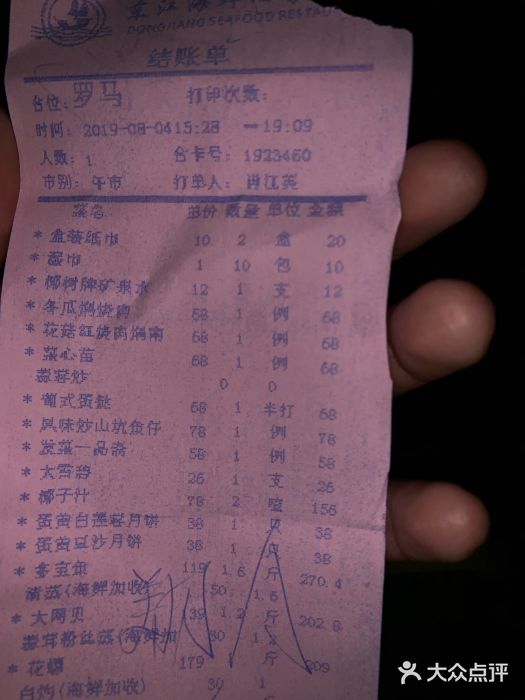 东江海鲜
DONGJIANG SEAFOOD RESTAU
结账单
台位: 罗马 打印次数:
时间: 2019-08-04 15:28 -19:09
人数: 1 台卡号: 1923460
市别: 午市 打单人: 肖江英
菜名 单价 数量 单位 金额
* 盒装纸巾 10 2 盒 20
* 湿巾 1 10 包 10
* 椰树牌矿泉水 12 1 支 12
* 冬瓜焖烧肉 68 1 例 68
* 花菇红烧肉焖南 68 1 例 68
* 菜心苗 68 1 例 68
蒜蓉炒 0 0
* 葡式蛋挞 68 1 半打 68
* 风味炒山坑鱼仔 78 1 例 78
* 发菜一品斋 58 1 例 58
* 大雪碧 26 1 支 26
* 椰子汁 78 2 喳 156
* 蛋黄白莲蓉月饼 38 1 只 38
* 蛋黄豆沙月饼 38 1 只 38
* 多宝鱼 119 1.6 斤 270.4
清蒸(海鲜加收) 50 1.6
* 大网贝 39 1.2 斤 202.8
蒜茸粉丝蒸(海鲜加 30 1.2
* 花螺 179 斤 209
白灼(海鲜加收) 30 1
大众点评